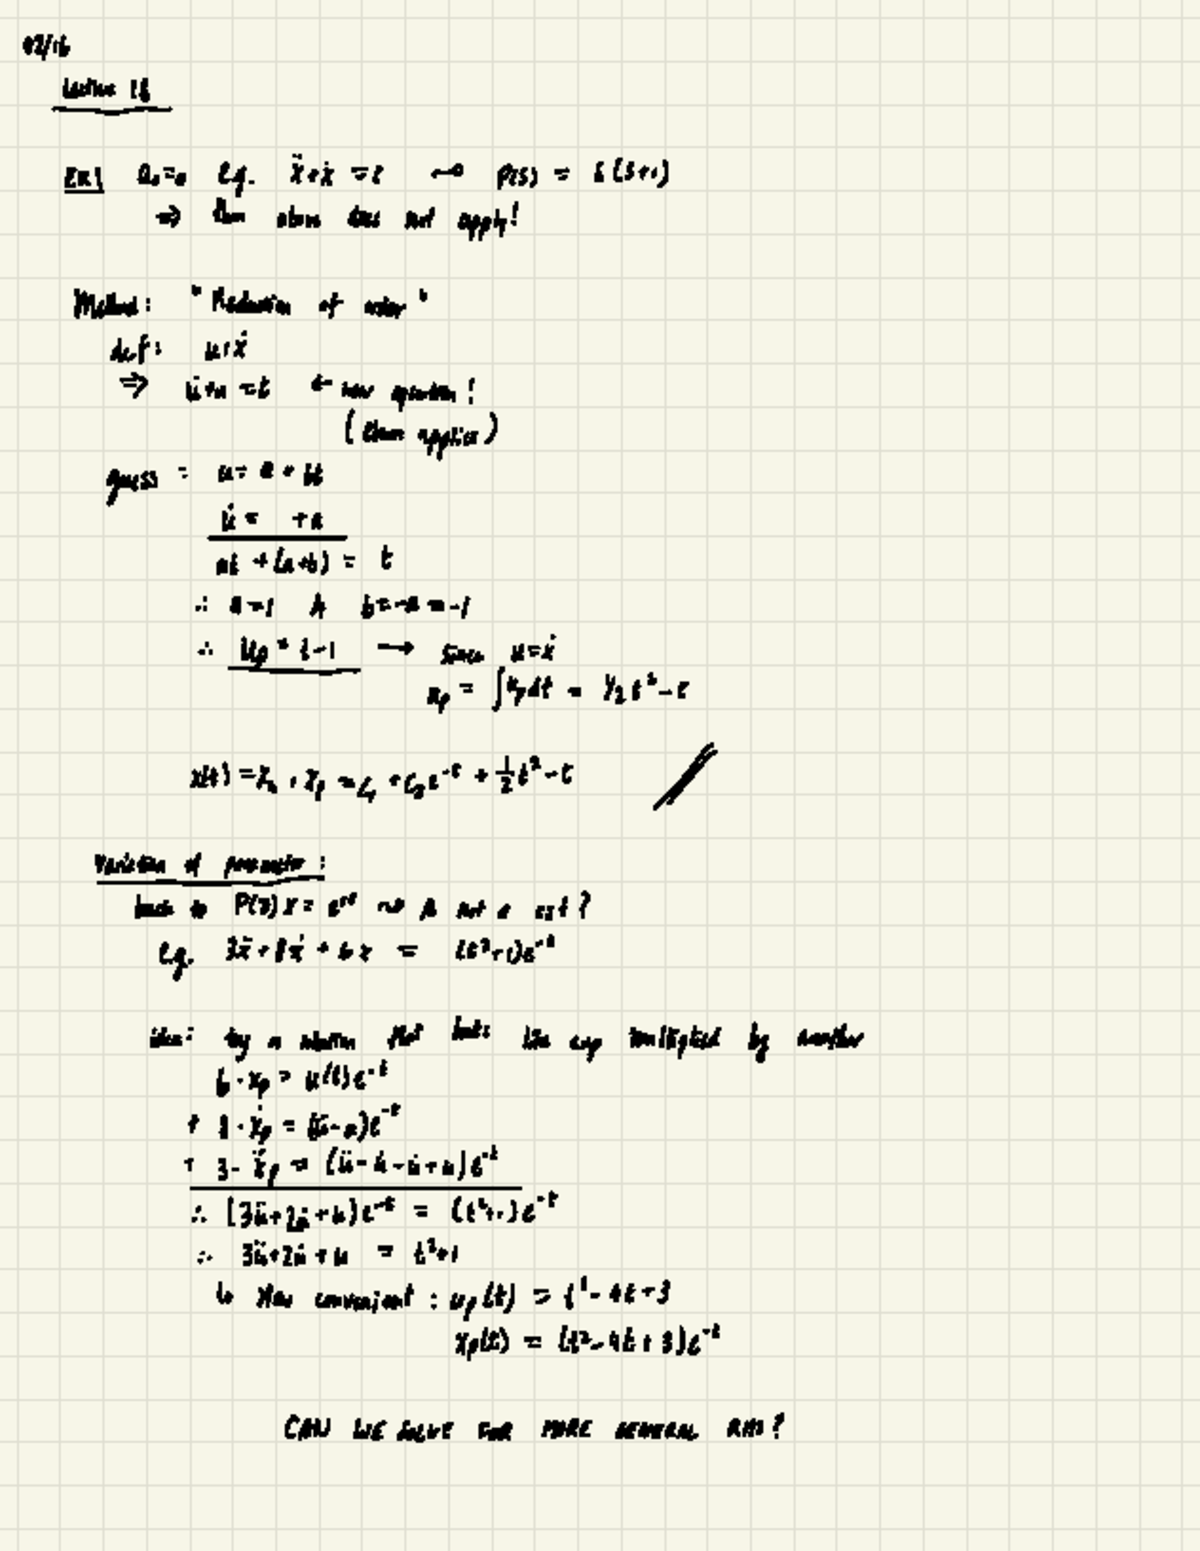 02/16
Lecture 18
EX1 a₀=0 e.g. ẍ+ẋ = t ⇝ p(s) = s(s+1)
⇒ thm above does not apply!
Method: "Reduction of order"
def: u=ẋ
⇒ u̇+u = t ← new equation!
(thm applies)
guess: u= a + bt
u̇ = +a
at + (a+b) = t
∴ a=1 & b=-a=-1
∴ up = t-1 → since u=ẋ
xp = ∫up dt = 1/2 t² - t
x(t) = xh + xp = c₁ + c₂e^-t + 1/2 t² - t
Variation of parameter:
back to P(D)x = e^rt ⇝ A not a cst?
e.g. 3ẍ+8ẋ+6x = (t²+1)e^-t
idea: try a solution that looks like exp multiplied by another
6·xp = u(t)e^-t
+ 8·ẋp = (u̇-u)e^-t
+ 3·ẍp = (ü-u̇-u̇+u)e^-t
∴ (3ü+2u̇+u)e^-t = (t²+1)e^-t
∴ 3ü+2u̇+u = t²+1
↳ convenient: up(t) = t²-4t+3
xp(t) = (t²-4t+3)e^-t
CAN WE SOLVE FOR MORE GENERAL RHS?